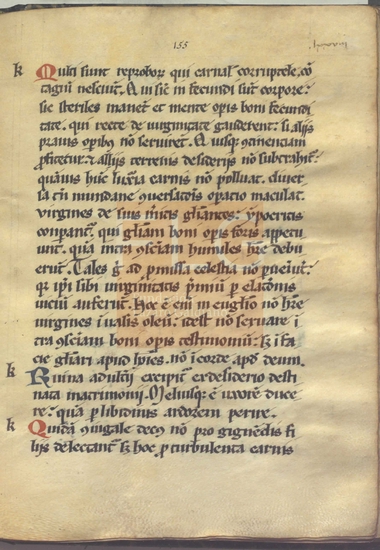 155
k Multi sunt reprobor qui carnal corruptele cō
tagiū nesciūt. Qui sic̄ infecundi sūt corpore:
sic steriles manēt et mente opis boni fecundi
tate. qui recte de uirginitate gauderent: si aliis
prauis opibꝫ nō seruirēt.
pficetur: & alijs terrenis desiderijs nō subtrahit:
quāuis hūc luxuria carnis nō polluat. diuer
sa tn̄ mundane ꝯuersatōis opatio maculat.
virgines de suis mitis gliantes: ypocritis
conpant. qui gliam boni opis foris appetu
unt. quā intra ꝯsciam humiles hre debu
erūt. Tales ḡ ad pmissa celestia nō pueniūt.
qr ipi sibi uirginitatis pmiū p elatōnis
uiciū auferūt. Hoc ē eni in euglio nō hre
uirgines i uasis oleū: idest nō seruare i
tra ꝯsciam boni opis testimoniū: sꝫ i fa
cie gliari apud hoies. nō i corde apd deum.
k Ruina adulterij excipit ex desiderio desti
nata matrimonij. Meliusqꝫ ē uxorē duce
re: quā p libidinis ardorem perire.
k Quidā ꝯiugale decꝰ nō pro gignēdis fi
lijs delectant sꝫ hoc p turbulenta carnis